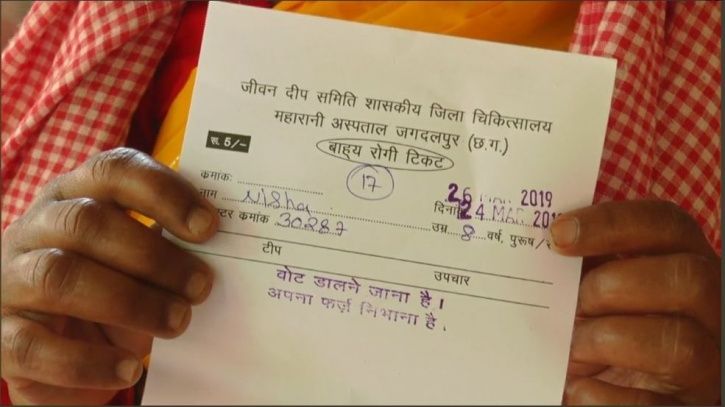 जीवन दीप समिति शासकीय जिला चिकित्सालय
महारानी अस्पताल जगदलपुर (छ.ग.)
रू. 5/-
बाह्य रोगी टिकट
17
क्रमांक:
26 MAR 2019
नाम Nisha
24 MAR 201
क्रमांक 30287
उम्र 8 वर्ष, पुरूष/
टीप
उपचार
वोट डालने जाना है।
अपना फर्ज़ निभाना है.